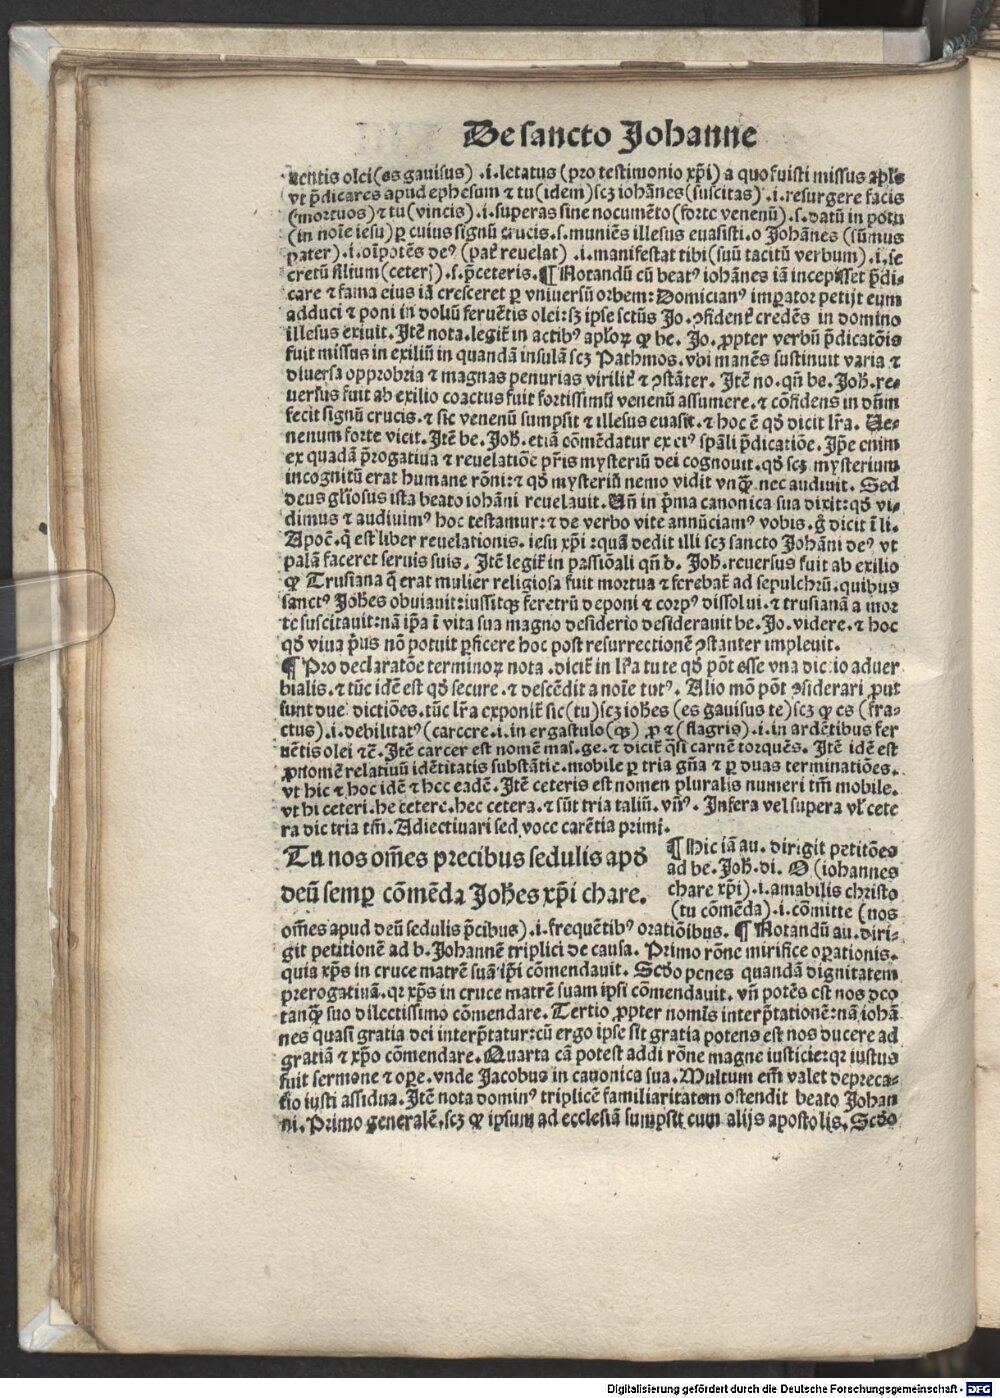 De sancto Johanne
uentis olei(es gauisus) .i.letatus (pro testimonio xp̄i) a quo fuisti missus apl's
vt p̄dicares apud ephesum ⁊ tu(idem)scꝫ iohānes(suscitas) .i.resurgere facis
(mortuos)⁊ tu(vincis).i.superas sine nocumēto(forte venenū).s.datū in potu
(in noīe iesu)ꝑ cuius signū crucis.s.muniēs illesus euasisti.o Johānes (sūmus
pater).i.oīpotēs deꝰ (pat̄ reuelat) .i.manifestat tibi(suū tacitū verbum).i.se
cretū filium(ceter̄).s.p̄ceteris.¶ Notandū cū beatꝰ iohānes iā incepisset p̄di-
care ⁊ fama eius iā cresceret ꝑ vniuersū orbem:Domicianꝰ imꝑator petijt eum
adduci ⁊ poni in doliū feruētis olei:sꝫ ipse sctūs Jo.ꝯfident̄ credēs in domino
illesus exiuit.Itē nota.legit̄ in actibꝰ aploꝝ ꝙ be. Jo.ꝓpter verbū p̄dicatōis
fuit missus in exiliū in quandā insulā scꝫ Pathmos.vbi manēs sustinuit varia ⁊
diuersa opprobria ⁊ magnas penurias virilit̄ ⁊ ꝯstāter. Itē no.qn̄ be.Joh̄.re-
uersus fuit ab exilio coactus fuit fortissimū venenū assumere.⁊ cōfidens in dn̄m
fecit signū crucis.⁊ sic venenū sumpsit ⁊ illesus euasit.⁊ hoc ē qd̄ dicit lr̄a. Ue-
nenum forte vicit.Itē be.Joh̄.etiā cōmēdatur ex eiꝰ spāli p̄dicatiōe. Ip̄e enim
ex quadā p̄rogatiua ⁊ reuelatiōe pr̄is mysteriū dei cognouit.qd̄ scꝫ mysterium
incognitū erat humane rōni:⁊ qd̄ mysteriū nemo vidit vnqꝫ nec audiuit. Sed
deus gl'iosus ista beato iohāni reuelauit.Un̄ in p̄ma canonica sua dixit:qd̄ vi-
dimus ⁊ audiuimꝰ hoc testamur:⁊ de verbo vite annūciamꝰ vobis.g̊ dicit ī li.
Apoc̄.q̄ est liber reuelationis. iesu xp̄i :quā dedit illi scꝫ sancto Johāni deꝰ vt
palā faceret seruis suis. Itē legit̄ in passiōali qn̄ b. Joh̄.reuersus fuit ab exilio
ꝙ Trusiana q̄ erat mulier religiosa fuit mortua ⁊ ferebat̄ ad sepulchrū.quibus
sanctꝰ Joh̄es obuiauit:iussitqꝫ feretrū deponi ⁊ corpꝰ dissolui.⁊ trusianā a mor
te suscitauit:nā ip̄a ī vita sua magno desiderio desiderauit be.Jo.videre.⁊ hoc
qd̄ viua p̄us nō potuit ꝑficere hoc post resurrectionē ꝯstanter impleuit.
¶ Pro declaratōe terminoꝝ nota .dicit̄ in lr̄a tute qd̄ pōt esse vna dictio aduer
bialis.⁊ tūc idē est qd̄ secure.⁊ descēdit a noīe tutꝰ. Alio mō pōt ꝯsiderari ꝓut
sunt due dictiōes.tūc lr̄a exponit̄ sic(tu)scꝫ ioh̄es (es gauisus te)scꝫ ꝙ es (fra-
ctus).i.debilitatꝰ(carcere.i.in ergastulo(qꝫ) ꝓ ⁊ (flagris).i.in ardētibus fer
uētis olei ⁊c̄. Itē carcer est nomē mas.ge.⁊ dicit̄ q̄si carnē torquēs. Itē idē est
ꝓnomē relatiuū idētitatis substātie.mobile ꝑ tria gn̄a ⁊ ꝑ duas terminatiōes.
vt hic ⁊ hoc idē ⁊ hec eadē.Itē ceteris est nomen pluralis numeri tm̄ mobile.
vt hi ceteri.he cetere.hec cetera.⁊ sūt tria taliū.vn̄ꝰ. Infera vel supera vl' cete
ra dic tria tm̄.Adiectiuari sed voce carētia primi.
Tu nos om̄es precibus sedulis apd̄
deū semꝑ cōmēda Joh̄es xp̄i chare.
¶ Hic iā au. dirigit petitōes
ad be.Joh̄.di. O (iohannes
chare xp̄i).i.amabilis christo
(tu cōmēda).i.cōmitte (nos
om̄es apud deū sedulis p̄cibus).i.frequētibꝰ oratiōibus.¶ Notandū au.diri-
git petitionē ad b.Johannē triplici de causa. Primo rōne mirifice oꝑationis.
quia xp̄s in cruce matrē suā ip̄i cōmendauit. Scd̄o penes quandā dignitatem
prerogatiuā.qr xp̄s in cruce matrē suam ipsi cōmendauit. vn̄ potēs est nos deo
tanqꝫ suo dilectissimo cōmendare.Tertio ꝓpter nomīs interp̄tationē:nā iohā
nes quasi gratia dei interp̄tatur:cū ergo ipse sit gratia potens est nos ducere ad
gratiā ⁊ xp̄o cōmendare.Quarta cā potest addi rōne magne iusticie:qr iustus
fuit sermone ⁊ oꝑe.vnde Jacobus in canonica sua.Multum em̄ valet depreca-
tio iusti assidua.Itē nota dominꝰ triplicē familiaritatem ostendit beato Johan
ni.Primo generalē.scꝫ ꝙ ipsum ad ecclesiā sumpsit cum alijs apostolis.Scd̄o
Digitalisierung gefördert durch die Deutsche Forschungsgemeinschaft - DFG